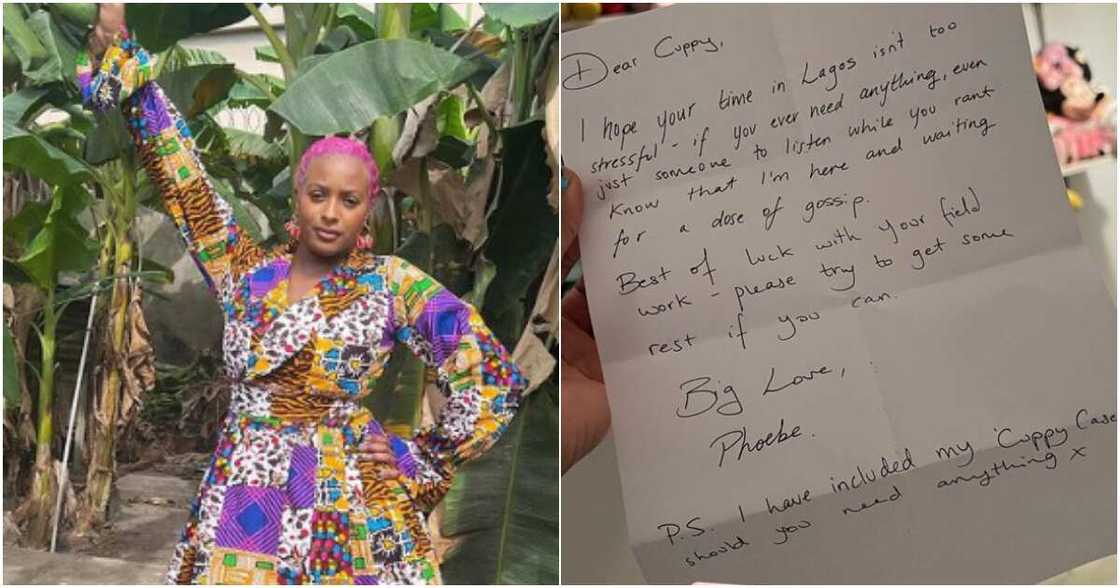 Dear Cuppy,
I hope your time in Lagos isn't too
stressful - if you ever need anything, even
just someone to listen while you rant
know that I'm here and waiting
for a dose of gossip.
Best of luck with your field
work - please try to get some
rest if you can.
Big Love,
Phoebe.
P.S. I have included my 'Cuppy Case
should you need anything x